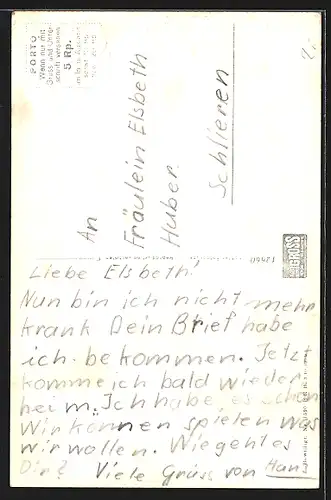 PORTO
Wenn nur mit
Gruss und Unter-
schrift versehen
5 Rp.
An
Fräulein Elsbeth
Huber
Schlieren
GROSS
12660
Liebe Elsbeth!
Nun bin ich nicht mehr
krank Dein Brief habe
ich bekommen. Jetzt
komme ich bald wieder
heim. Ich habe es schön
Wir können spielen was
wir wollen. Wie geht es
Dir? Viele Grüss von Hans